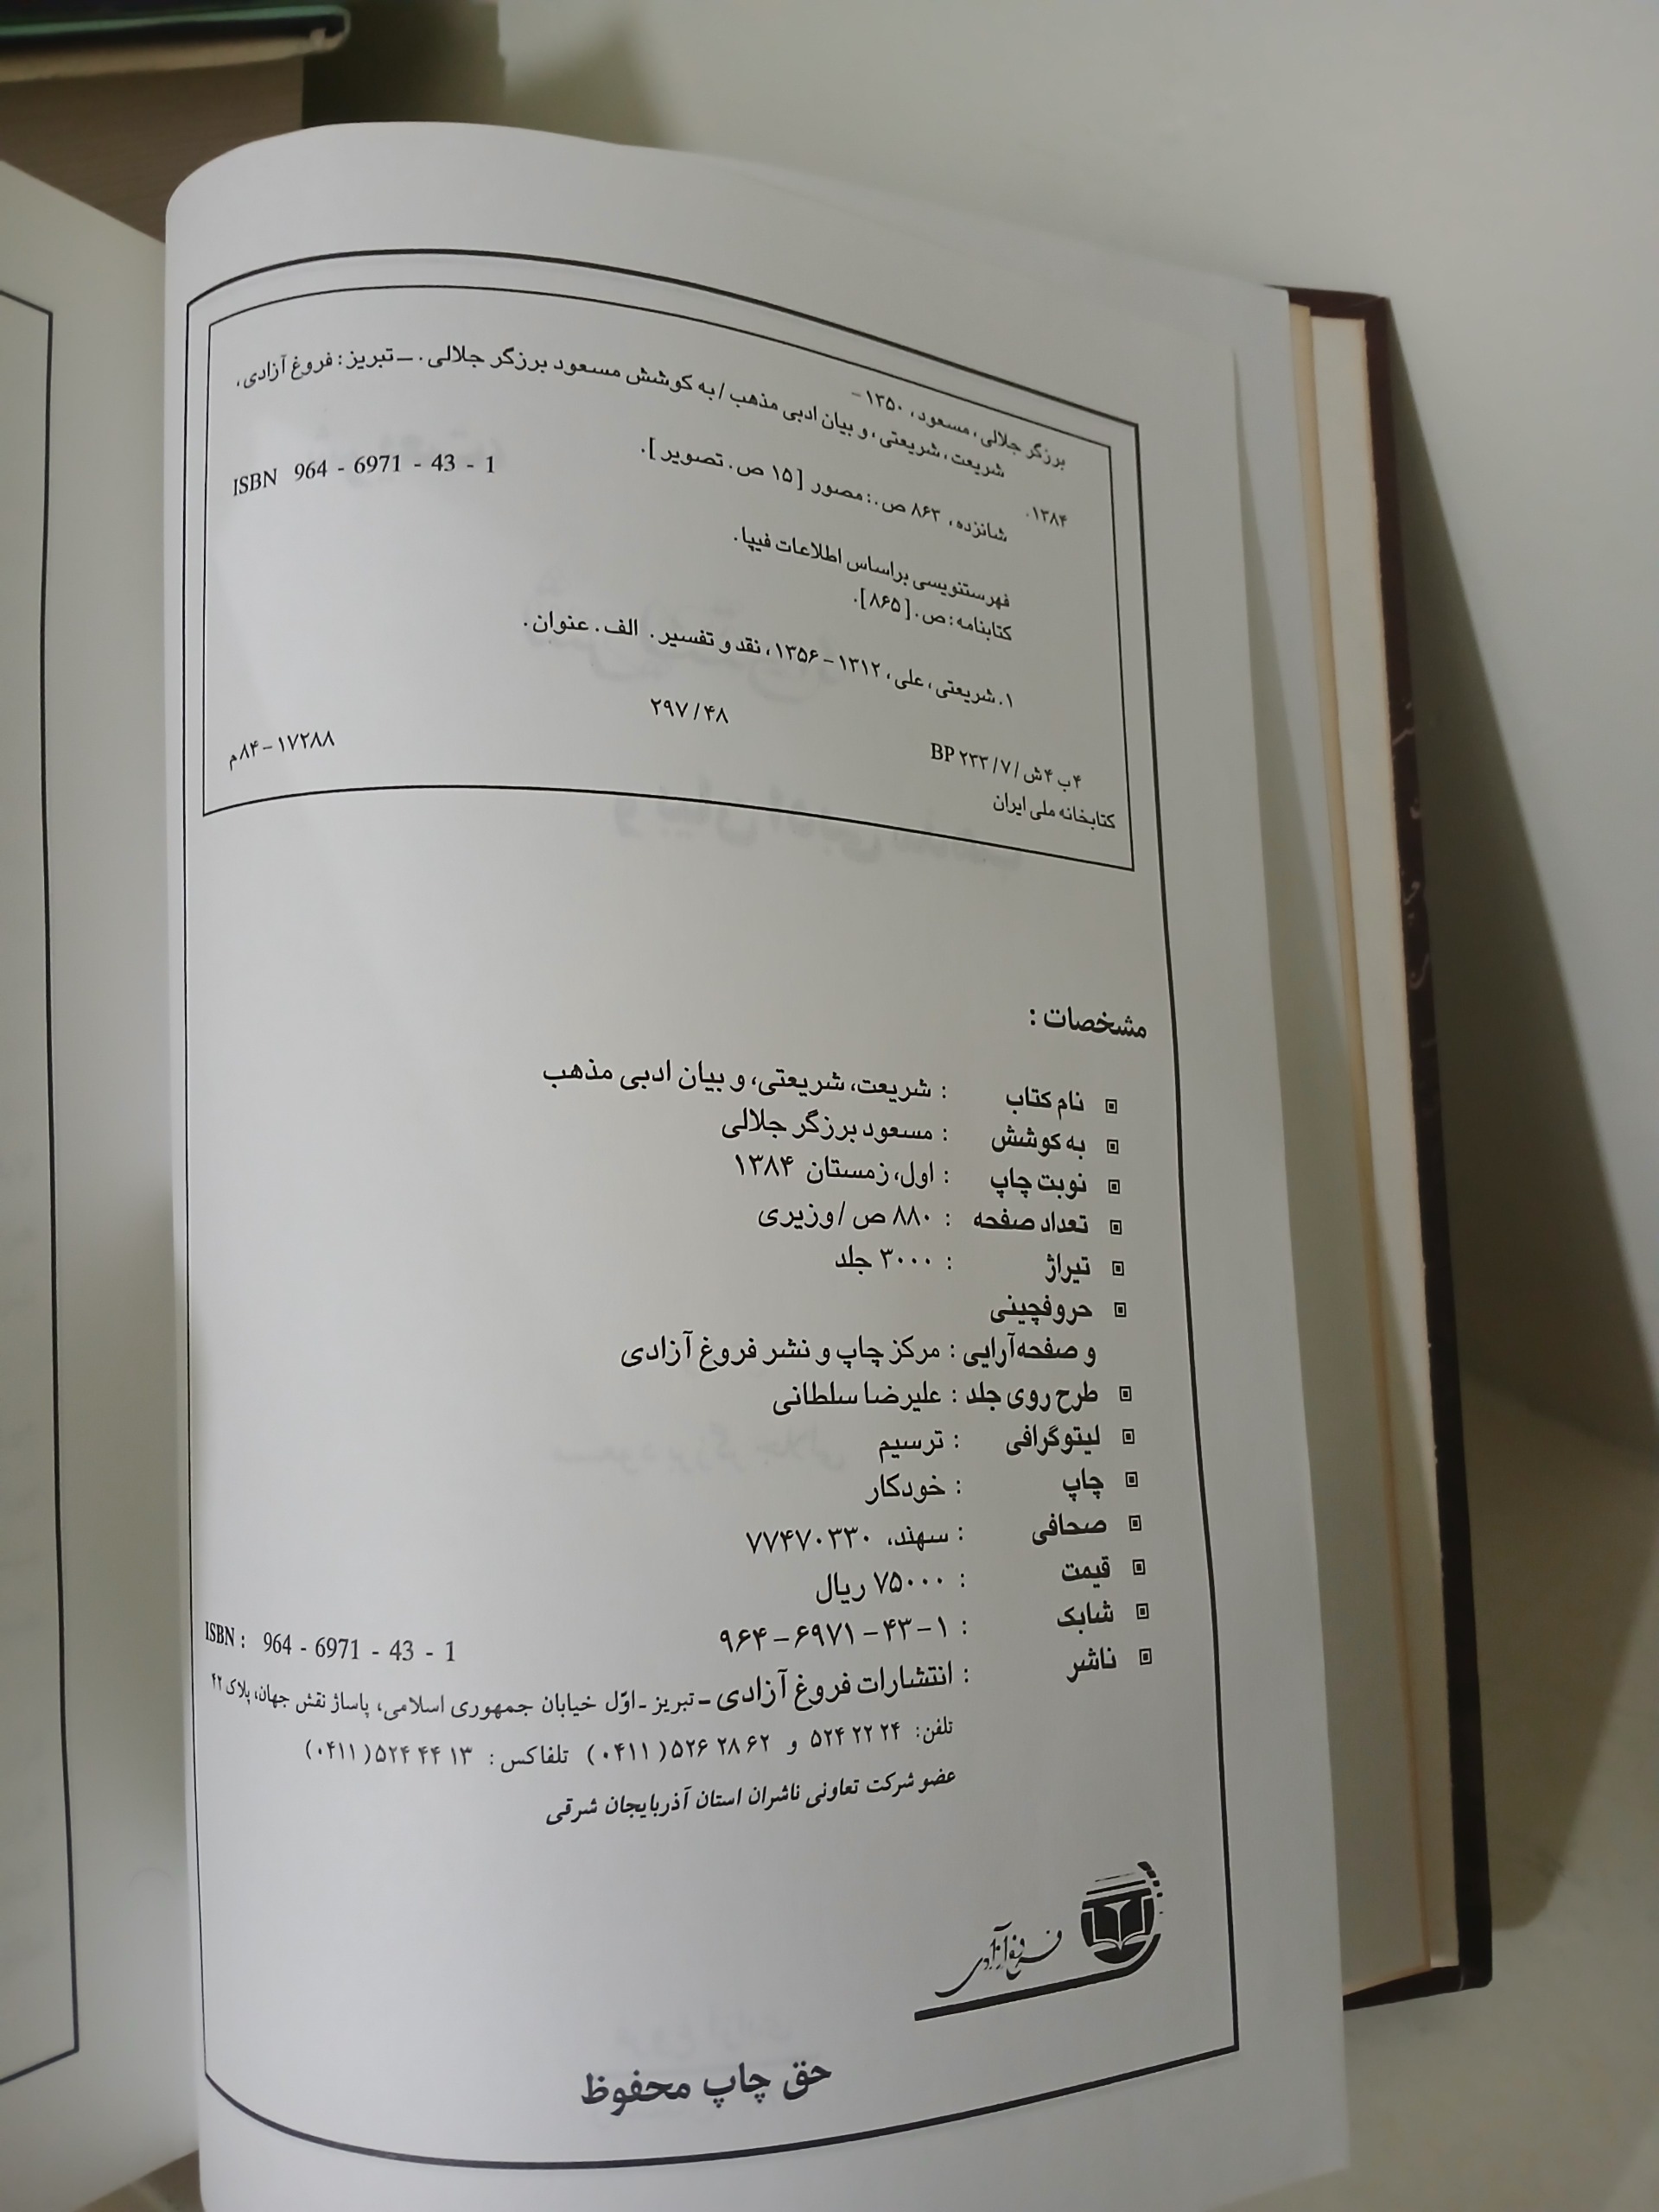 برزگر جلالی، مسعود، ۱۳۵۰ -
شریعت، شریعتی، و بیان ادبی مذهب / به کوشش مسعود برزگر جلالی. ــ تبریز: فروغ آزادی،
۱۳۸۴.
شانزده، ۸۶۳ ص.: مصور [۱۵ ص. تصویر].
ISBN 964 - 6971 - 43 - 1
فهرستنویسی براساس اطلاعات فیپا.
کتابنامه: ص. [۸۶۵].
۱. شریعتی، علی، ۱۳۱۲ - ۱۳۵۶، نقد و تفسیر. الف. عنوان.
۲۹۷/۴۸
۴ب ۴ش / ۷ / ۲۳۳ BP
کتابخانه ملی ایران
۱۷۲۸۸ - ۸۴م
مشخصات :
نام کتاب : شریعت، شریعتی، و بیان ادبی مذهب
به کوشش : مسعود برزگر جلالی
نوبت چاپ : اول، زمستان ۱۳۸۴
تعداد صفحه : ۸۸۰ ص / وزیری
تیراژ : ۳۰۰۰ جلد
حروفچینی
و صفحه‌آرایی : مرکز چاپ و نشر فروغ آزادی
طرح روی جلد : علیرضا سلطانی
لیتوگرافی : ترسیم
چاپ : خودکار
صحافی : سهند، ۷۷۴۷۰۳۳۰
قیمت : ۷۵۰۰۰ ریال
شابک : ۱-۴۳-۶۹۷۱-۹۶۴ ISBN : 964 - 6971 - 43 - 1
ناشر : انتشارات فروغ آزادی ــ تبریز ـ اوّل خیابان جمهوری اسلامی، پاساژ نقش جهان، پلاک ۴۲
تلفن: ۲۴ ۲۲ ۵۲۴ و ۶۲ ۲۸ ۵۲۶ (۰۴۱۱) تلفاکس: ۱۳ ۴۴ ۵۲۴ (۰۴۱۱)
عضو شرکت تعاونی ناشران استان آذربایجان شرقی
فروغ آزادی
حق چاپ محفوظ